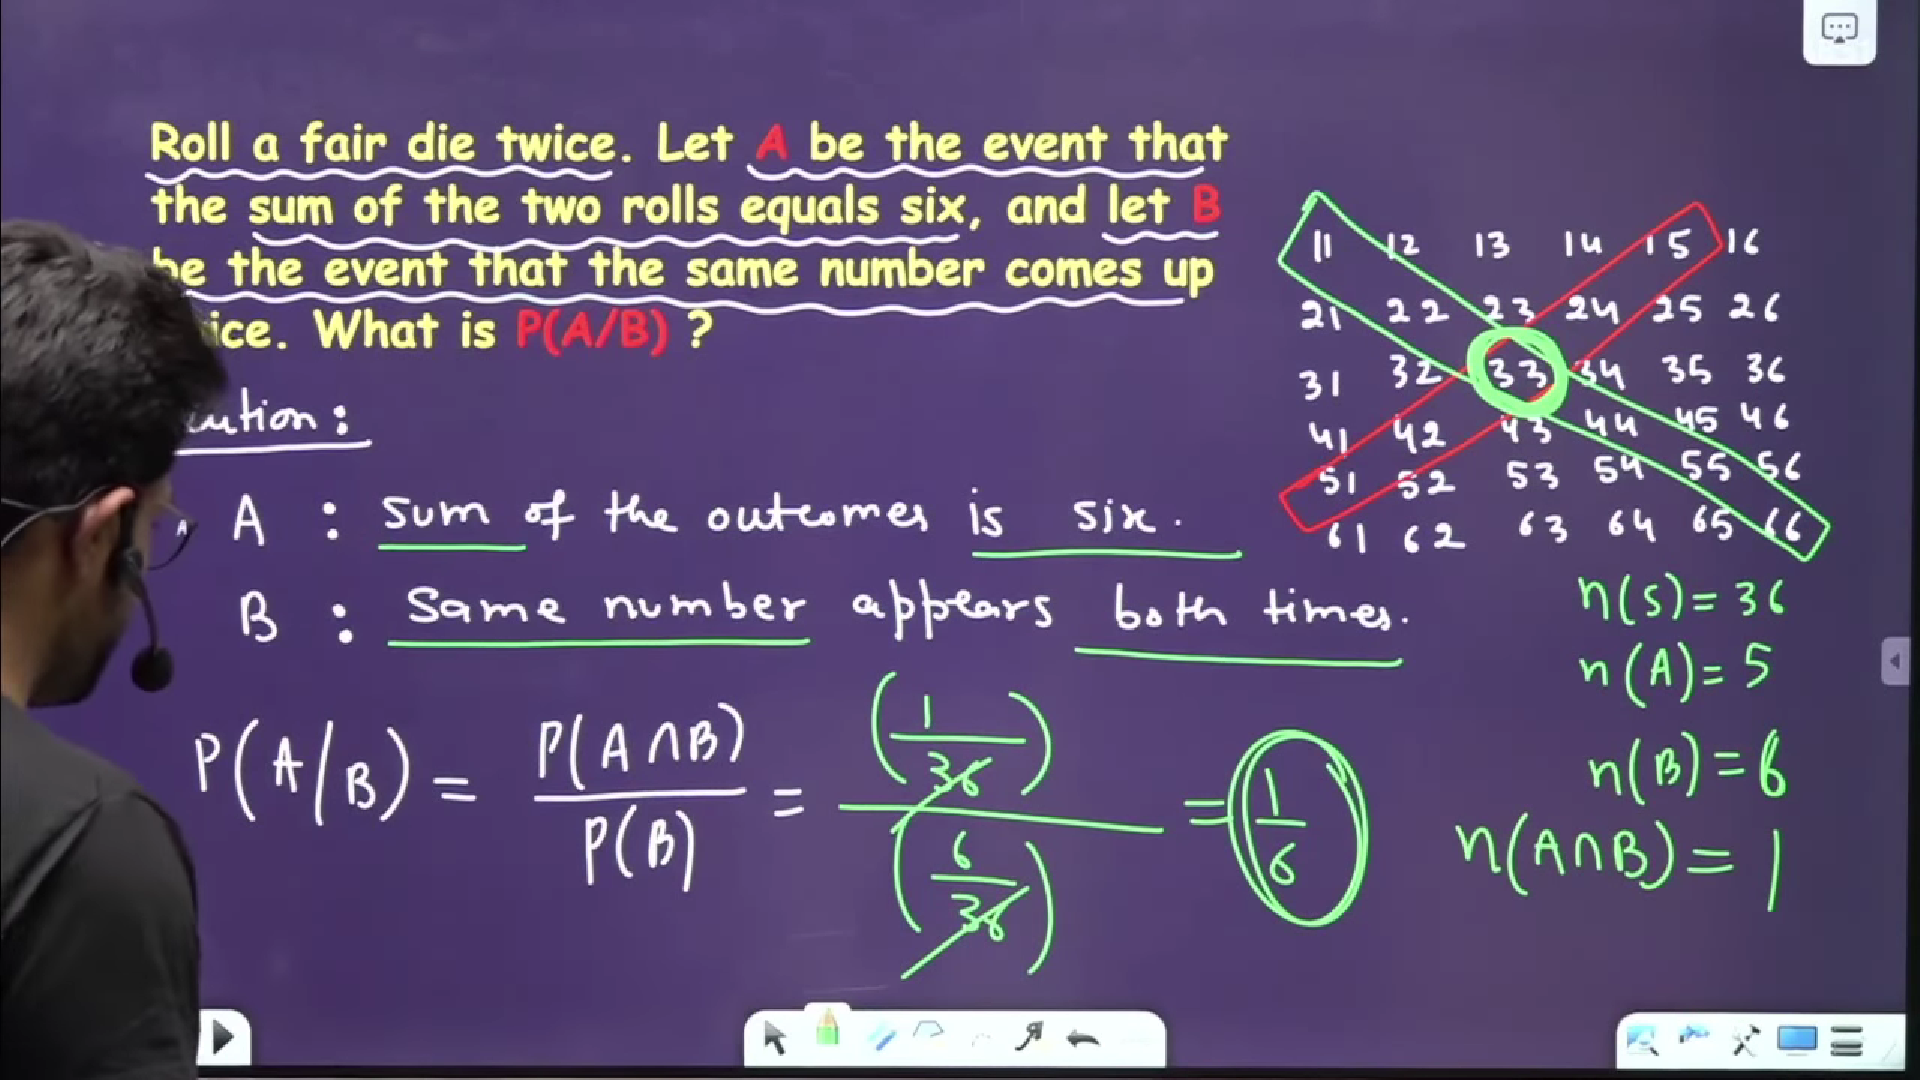 Roll a fair die twice. Let A be the event that
the sum of the two rolls equals six, and let B
be the event that the same number comes up
ice. What is P(A/B) ?
ution :
A : sum of the outcomes is six.
B : Same number appears both times.
P(A/B) = P(A∩B) / P(B) = (1/36) / (6/36) = 1/6
11 12 13 14 15 16
21 22 23 24 25 26
31 32 33 34 35 36
41 42 43 44 45 46
51 52 53 54 55 56
61 62 63 64 65 66
n(S) = 36
n(A) = 5
n(B) = 6
n(A∩B) = 1